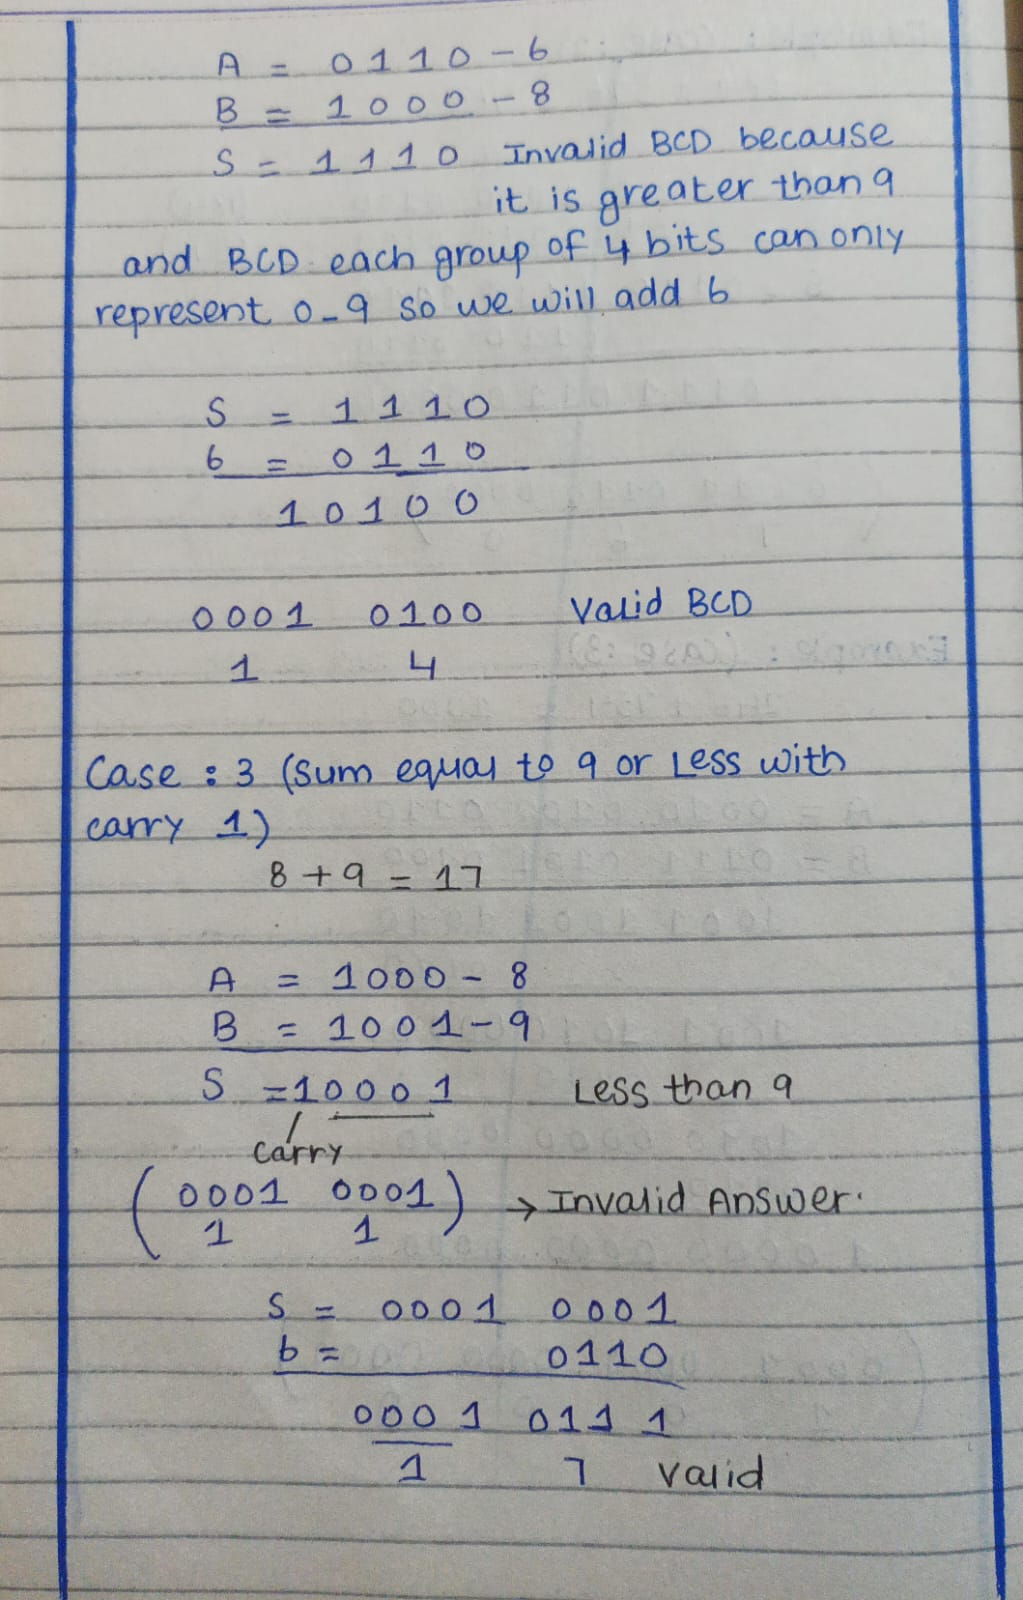 A = 0110 - 6
B = 1000 - 8
S = 1110 Invalid BCD because
it is greater than 9
and BCD each group of 4 bits can only
represent 0-9 so we will add 6
S = 1110
6 = 0110
10100
0001 0100 Valid BCD
1 4
Case : 3 (Sum equal to 9 or Less with
carry 1)
8 + 9 = 17
A = 1000 - 8
B = 1001 - 9
S = 10001 Less than 9
carry
(0001 0001) → Invalid Answer.
1 1
S = 0001 0001
6 = 0110
0001 0111
1 7 Valid